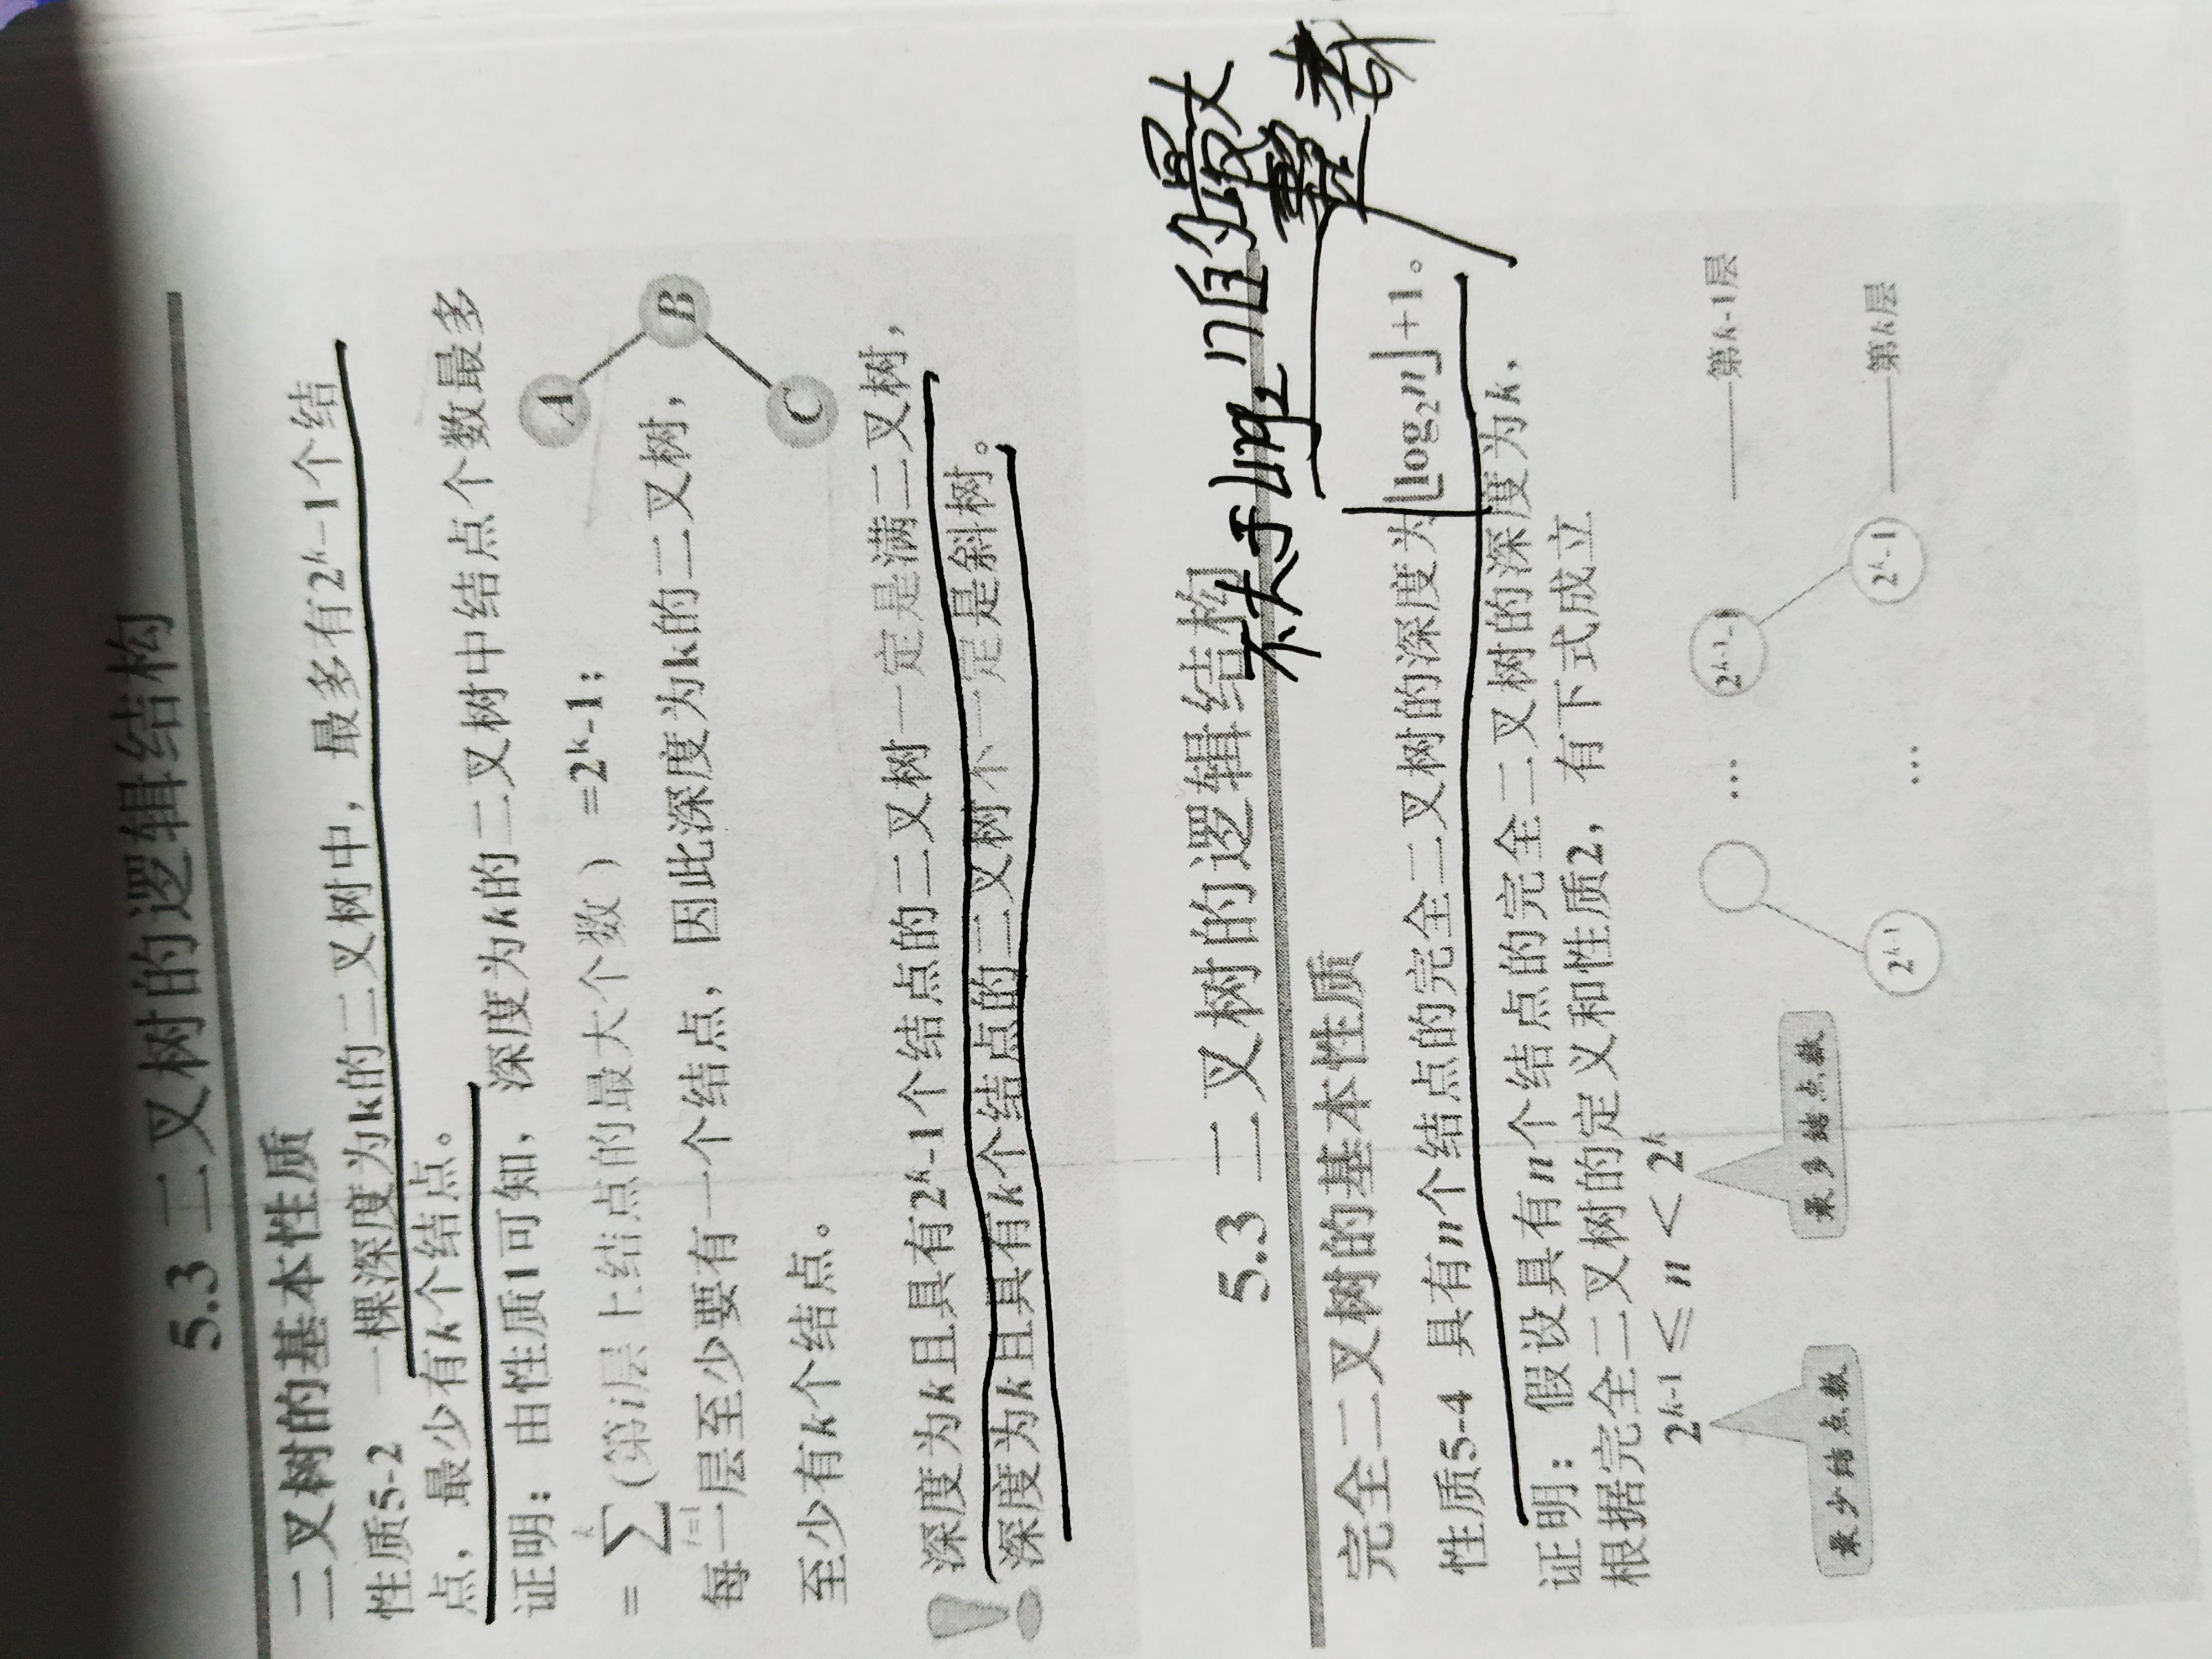 5.3 二叉树的逻辑结构
二叉树的基本性质
性质5-2 一棵深度为k的二叉树中，最多有2ᵏ-1个结
点，最少有k个结点。
证明：由性质1可知，深度为k的二叉树中结点个数最多
= ∑ᵏᵢ₌₁(第i层上结点的最大个数) =2ᵏ-1；
每一层至少要有一个结点，因此深度为k的二叉树，
至少有k个结点。
A
B
C
深度为k且具有2ᵏ-1个结点的二叉树一定是满二叉树，
深度为k且具有k个结点的二叉树不一定是斜树。
5.3 二叉树的逻辑结构
不大于log₂n的最大
整数
完全二叉树的基本性质
性质5-4 具有n个结点的完全二叉树的深度为⌊log₂n⌋+1。
证明：假设具有n个结点的完全二叉树的深度为k，
根据完全二叉树的定义和性质2，有下式成立
2ᵏ⁻¹ ≤ n < 2ᵏ
最少结点数
最多结点数
… 2ᵏ⁻¹-1 第k-1层
2ᵏ⁻¹ … 2ᵏ-1 第k层